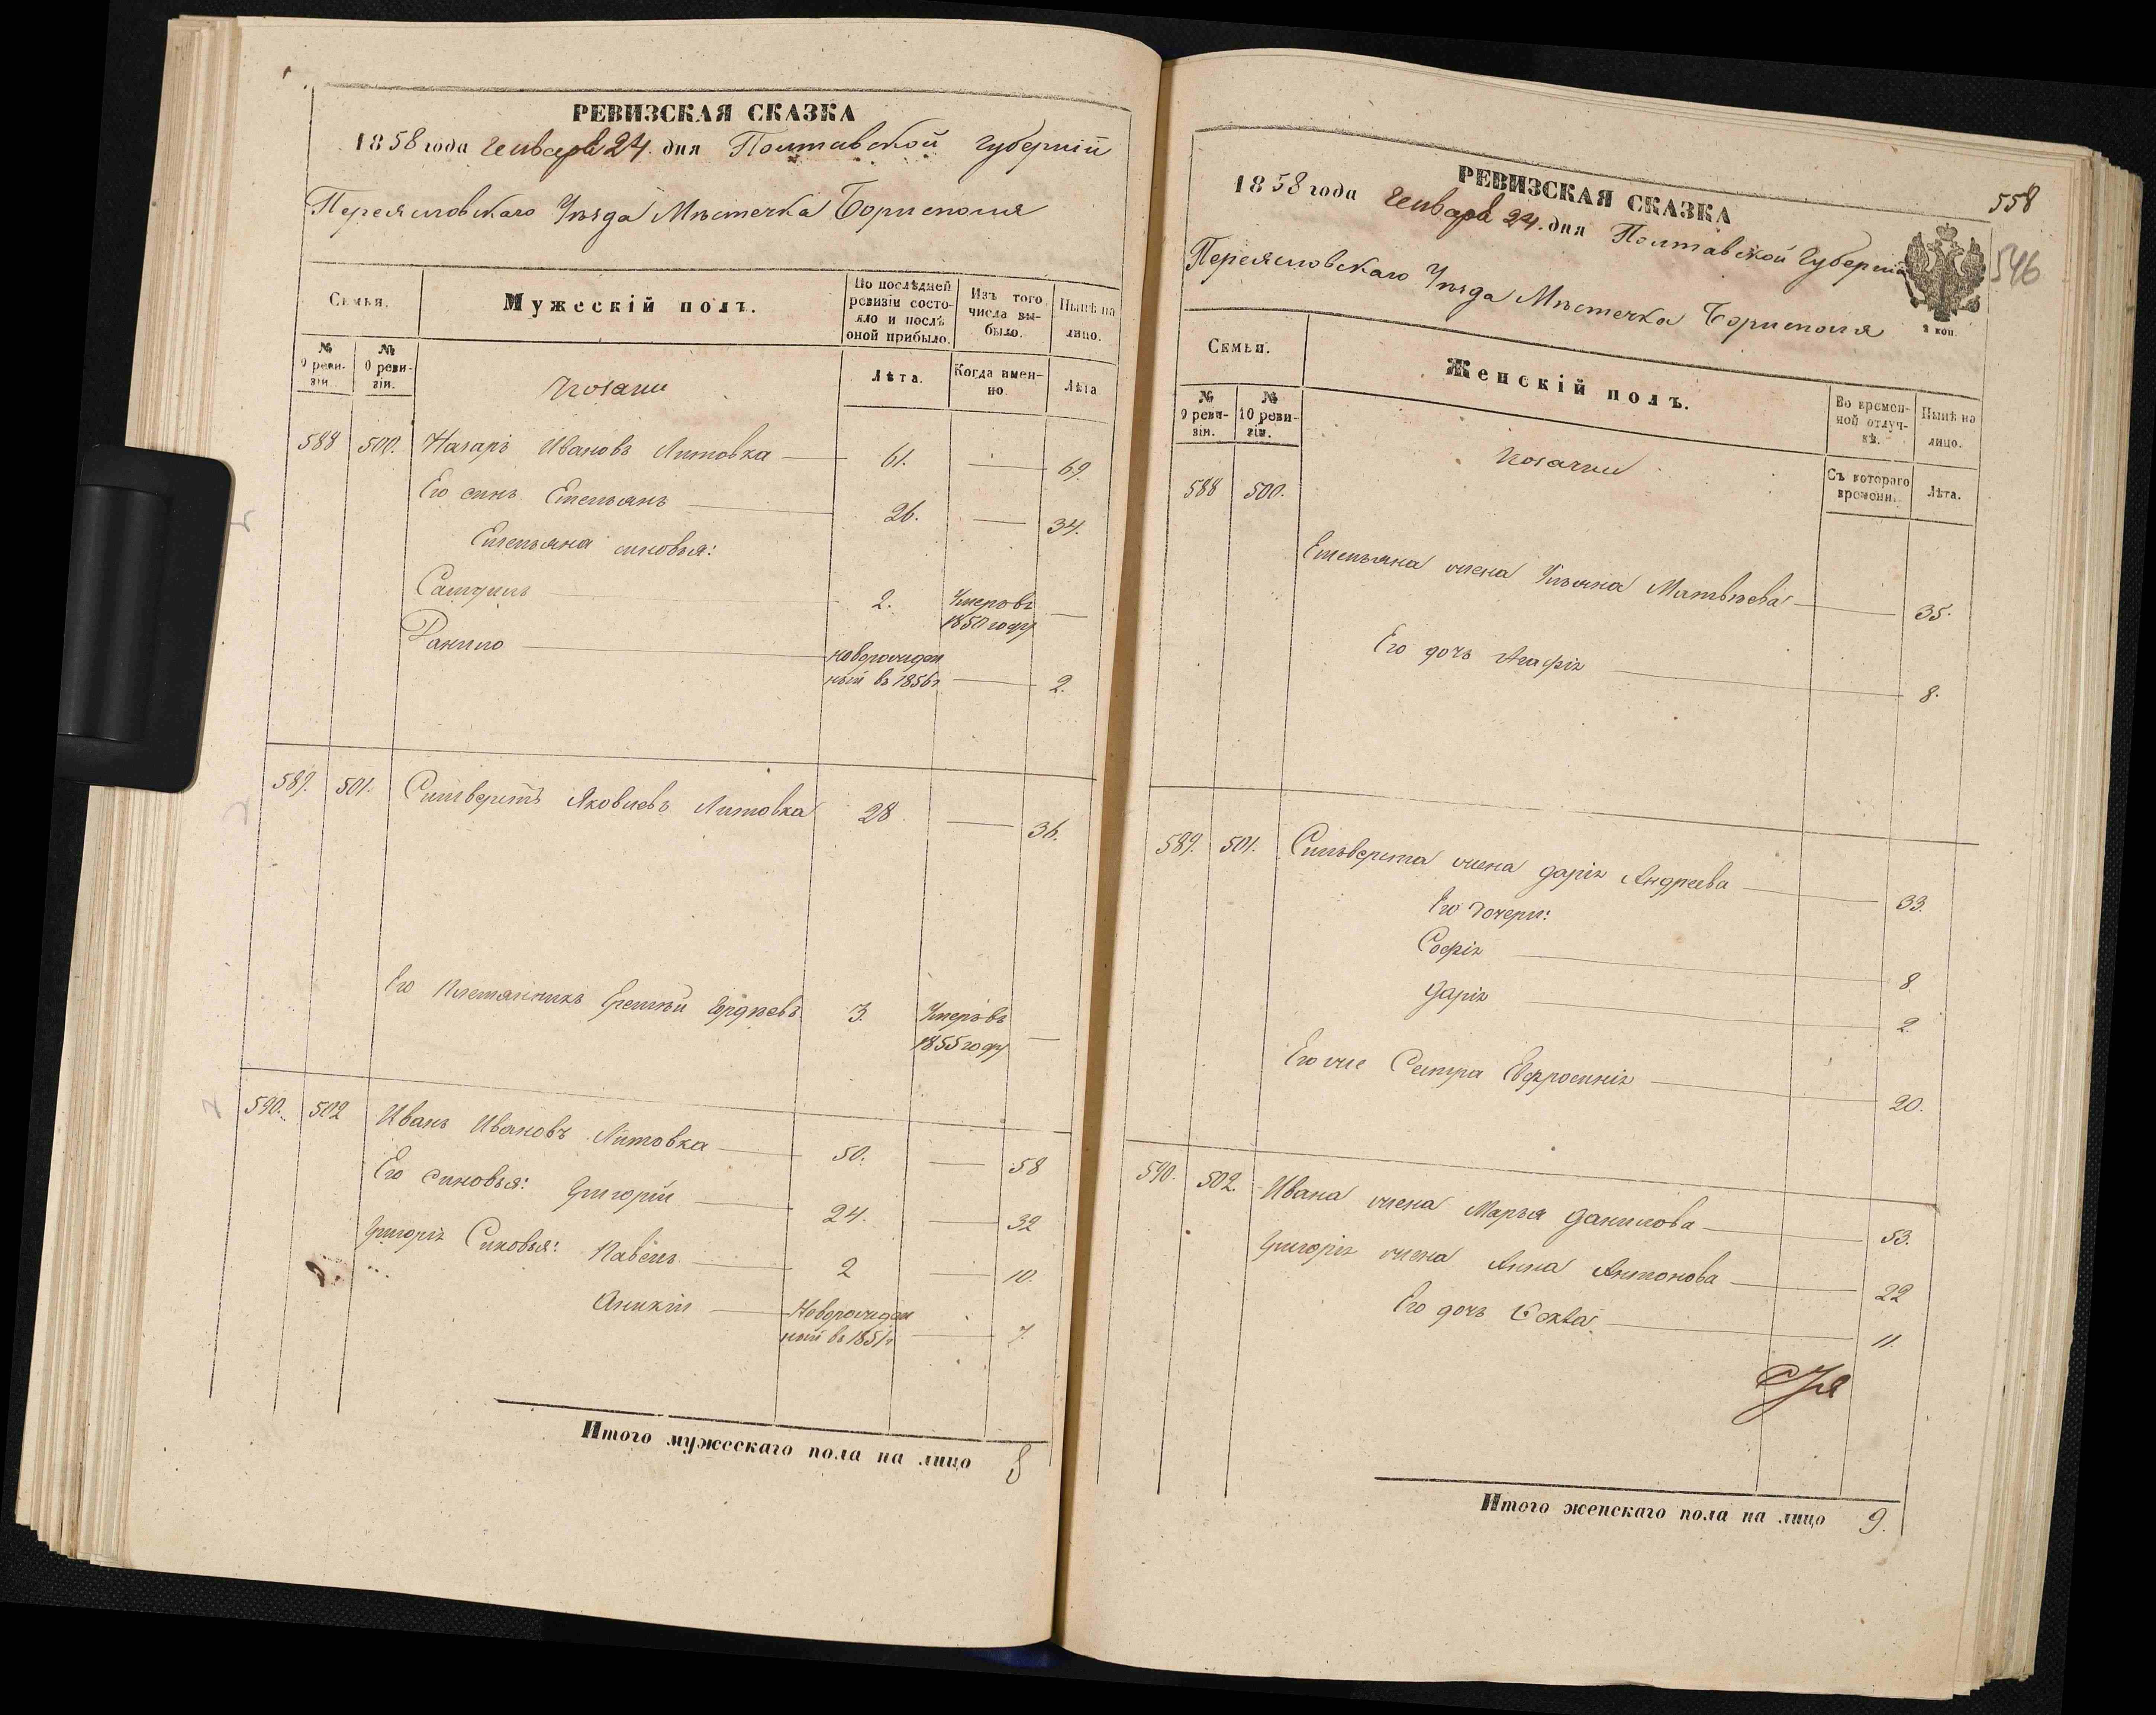 РЕВИЗСКАЯ СКАЗКА
1858 года Генваря 24. дня Полтавской Губерніи
Переясловскаго Уѣзда Мѣстечка Борисполя
Семья.
Мужескій полъ.
По послѣдней ревизіи состояло и послѣ оной прибыло.
Изъ того числа выбыло.
Нынѣ на лицо.
№ 9 ревизіи.
№ 0 ревизіи.
Козаки
Лѣта.
Когда именно.
Лѣта
588 500. Назаръ Ивановъ Литовка 61. — 69.
Его сынъ Емельянъ 26. — 34.
Емельяна сыновья:
Самуилъ 2. Умеръ въ 1850 году —
Данило новорожденный въ 1856 г. — 2.
589. 501. Сильверстъ Яковлевъ Литовка 28 — 36.
Его племянникъ Еремѣй Гордѣевъ 3. Умеръ въ 1855 году —
590. 502 Иванъ Ивановъ Литовка 50. — 58
Его сыновья: Григорій 24. — 32
Григорія Сыновья: Павелъ 2 — 10.
Аникій Новорожденный въ 1851 г — 7.
Итого мужескаго пола на лицо 8
558
546
РЕВИЗСКАЯ СКАЗКА
1858 года Генваря 24. дня Полтавской Губерніи
Переясловскаго Уѣзда Мѣстечка Борисполя
2 коп.
Семья.
Женскій полъ.
Во временной отлучкѣ.
Нынѣ на лицо.
№ 9 ревизіи.
№ 10 ревизіи.
Козачки
Съ котораго времени.
Лѣта.
588 500.
Емельяна жена Ульяна Матвѣева 35.
Его дочь Агафія 8.
589. 501. Сильверста жена Дарія Андреева 33.
Его дочери:
Софія 8.
Дарія 2.
Его же Сестра Евфросинія 20.
590. 502. Ивана жена Марья Данилова 53.
Григорія жена Анна Антонова 22
Его дочь 11.
Итого женскаго пола на лицо 9.